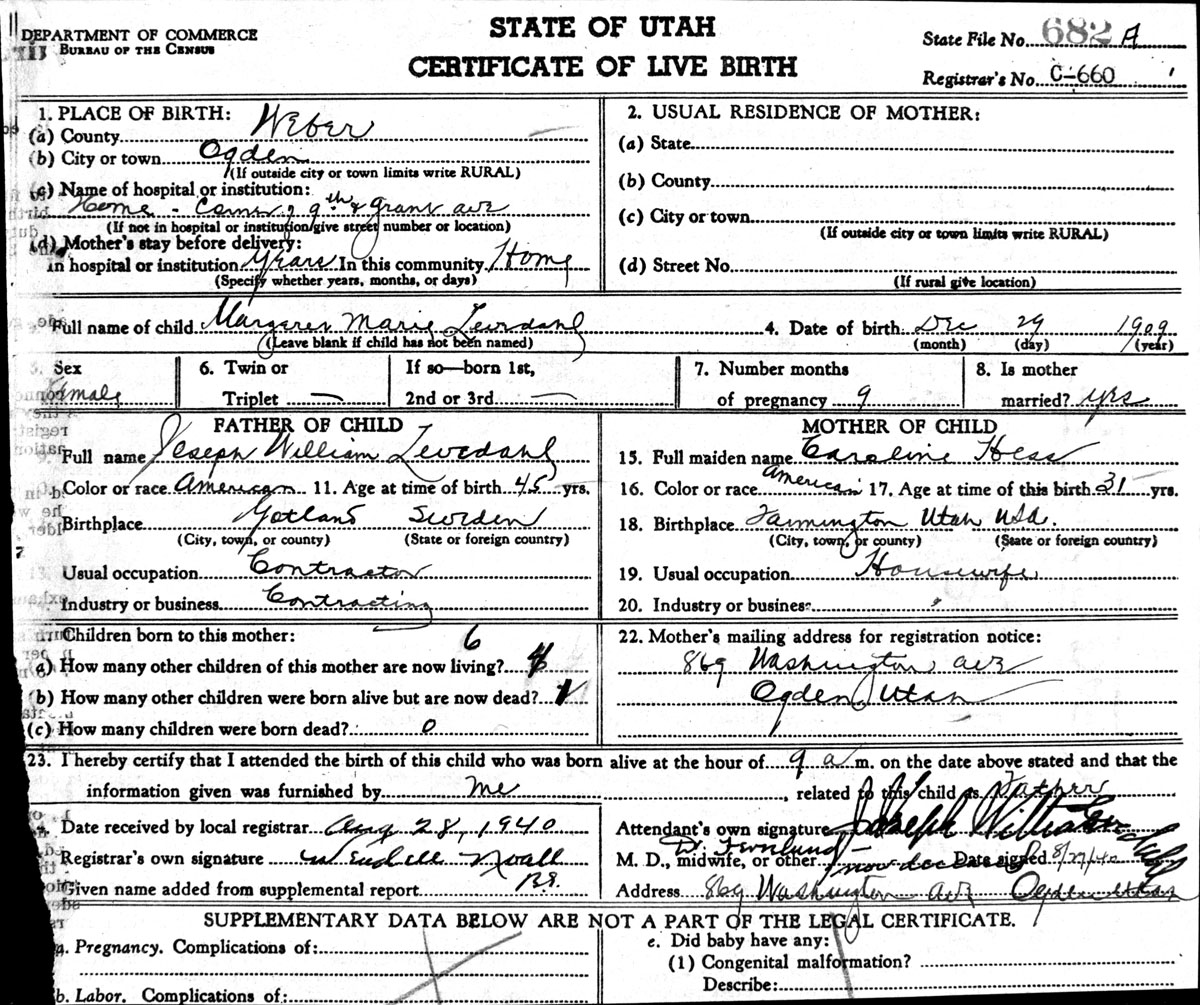 DEPARTMENT OF COMMERCE
BUREAU OF THE CENSUS
STATE OF UTAH
CERTIFICATE OF LIVE BIRTH
State File No. 682 A
Registrar's No. C-660
1. PLACE OF BIRTH:
(a) County Weber
(b) City or town Ogden
(If outside city or town limits write RURAL)
(c) Name of hospital or institution:
Home - Corner 9th & Grant ave
(If not in hospital or institution give street number or location)
(d) Mother's stay before delivery:
In hospital or institution years In this community Home
(Specify whether years, months, or days)
2. USUAL RESIDENCE OF MOTHER:
(a) State
(b) County
(c) City or town
(If outside city or town limits write RURAL)
(d) Street No.
(If rural give location)
Full name of child Margaret Marie Leverdahl
(Leave blank if child has not been named)
4. Date of birth Dec 29 1909
(month) (day) (year)
Sex
Female
6. Twin or
Triplet —
If so—born 1st,
2nd or 3rd —
7. Number months
of pregnancy 9
8. Is mother
married? yes
FATHER OF CHILD
Full name Joseph William Leverdahl
Color or race American 11. Age at time of birth 45 yrs.
Birthplace Gotland Sweden
(City, town, or county) (State or foreign country)
Usual occupation Contractor
Industry or business Contracting
MOTHER OF CHILD
15. Full maiden name Caroline Hess
16. Color or race American 17. Age at time of this birth 31 yrs.
18. Birthplace Farmington Utah USA.
(City, town, or county) (State or foreign country)
19. Usual occupation Housewife
20. Industry or business
Children born to this mother: 6
(a) How many other children of this mother are now living? 4
(b) How many other children were born alive but are now dead? 1
(c) How many children were born dead? 0
22. Mother's mailing address for registration notice:
869 Washington ave
Ogden, Utah
23. I hereby certify that I attended the birth of this child who was born alive at the hour of 9 a m. on the date above stated and that the
information given was furnished by me, related to this child as Father
Date received by local registrar Aug 28, 1940
Registrar's own signature Wendell Noall
Given name added from supplemental report
Attendant's own signature Joseph William
M. D., midwife, or other Dr. now deceased Date signed 8/27/40
Address 869 Washington ave Ogden Utah
SUPPLEMENTARY DATA BELOW ARE NOT A PART OF THE LEGAL CERTIFICATE.
a. Pregnancy. Complications of:
b. Labor. Complications of:
e. Did baby have any:
(1) Congenital malformation?
Describe: